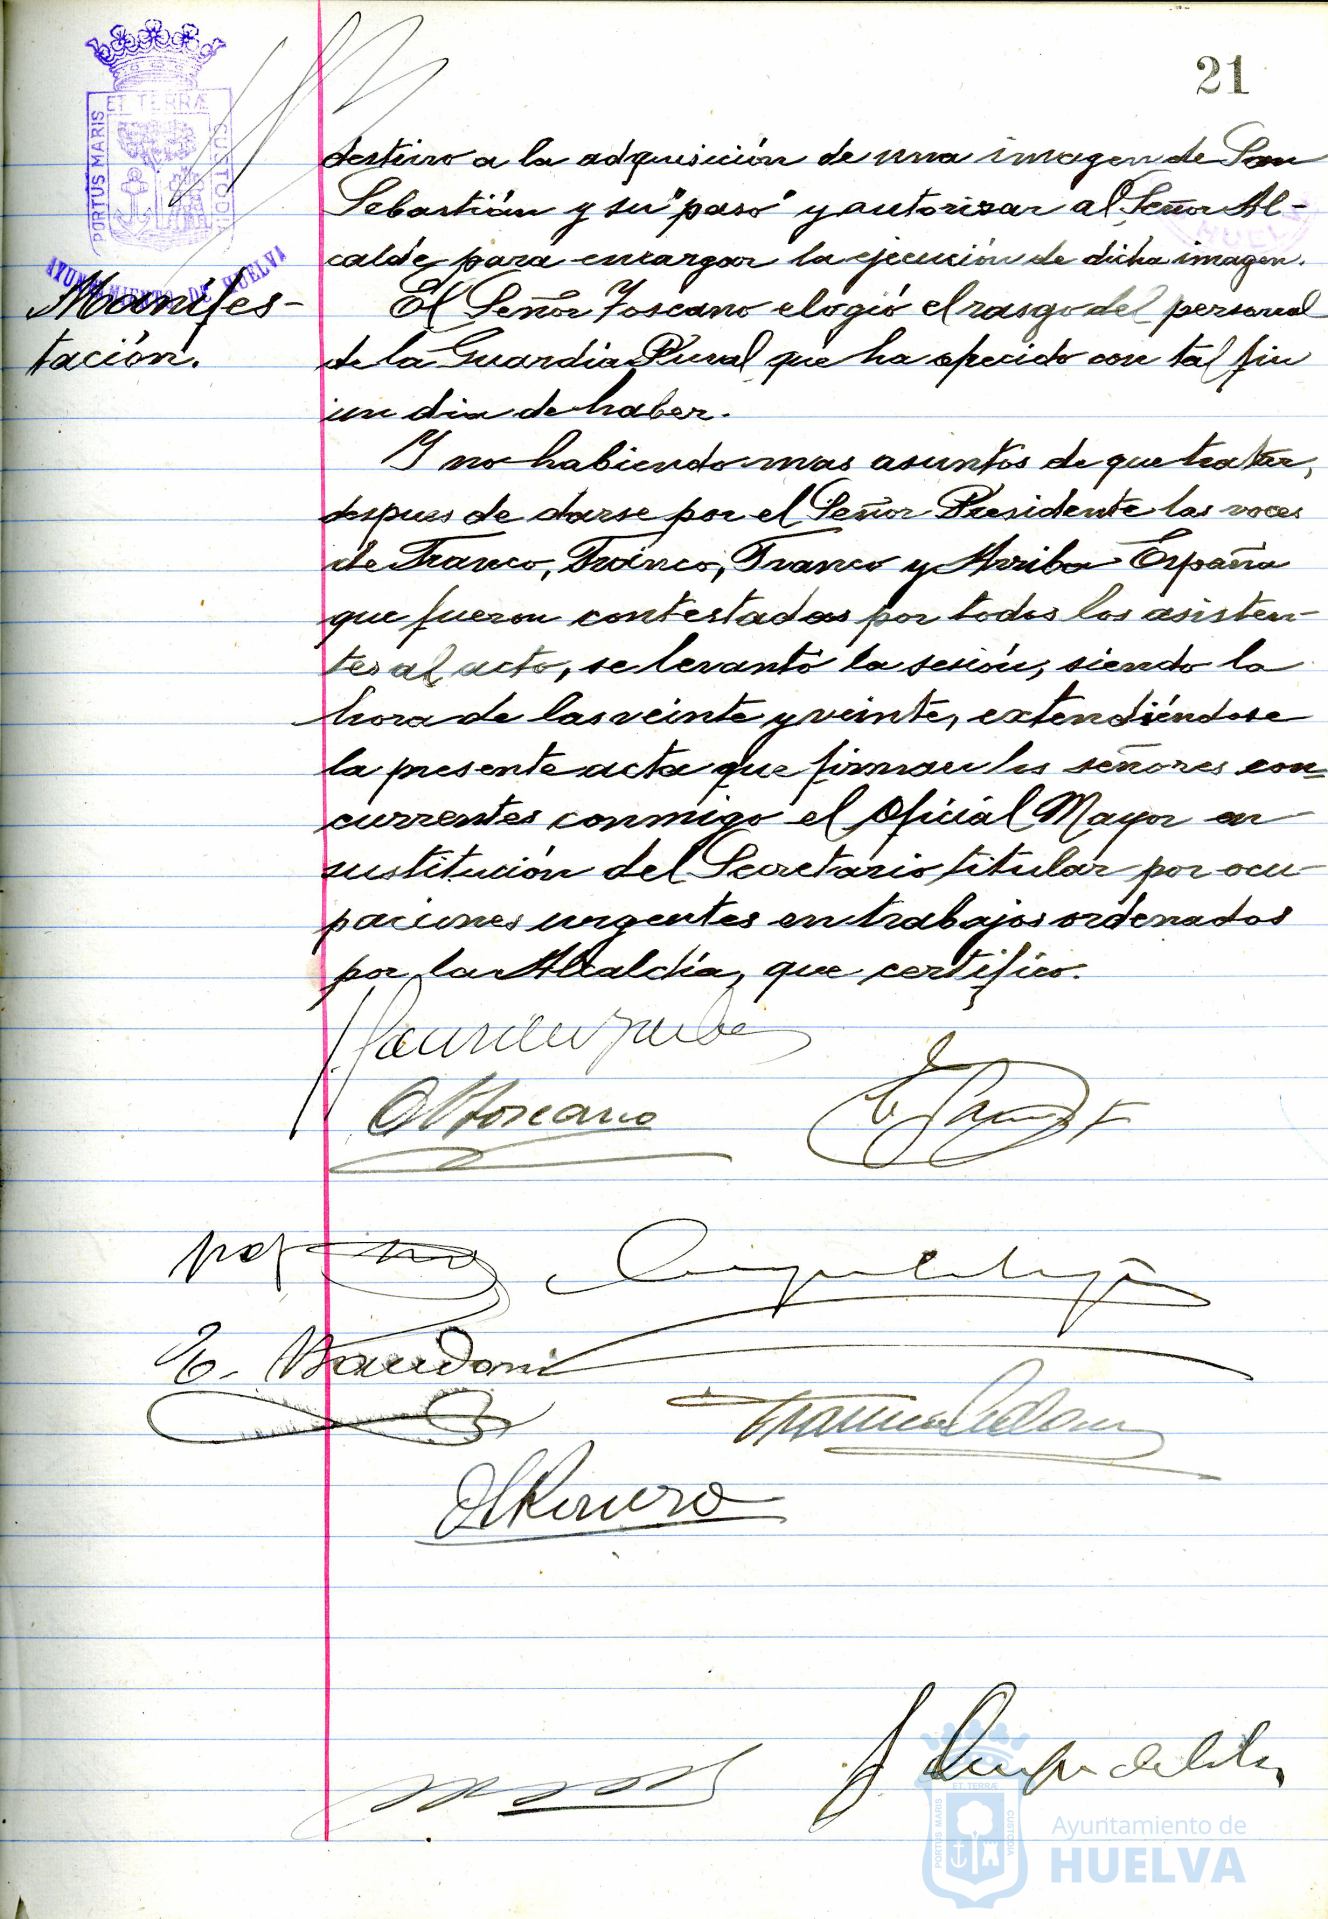 21
PORTUS MARIS
ET TERRÆ
CUSTODIA
AYUNTAMIENTO DE HUELVA
HUELVA
destino a la adquisición de una imagen de San
Sebastián y su "paso" y autorizar al Señor Al-
calde para encargar la ejecución de dicha imagen.
Manifes-
tación.
El Señor Toscano elogió el rasgo del personal
de la Guardia Rural que ha ofrecido con tal fin
un dia de haber.
Y no habiendo mas asuntos de que tratar,
despues de darse por el Señor Presidente las voces
de Franco, Franco, Franco y Arriba España
que fueron contestadas por todos los asisten-
tes al acto, se levantó la sesión, siendo la
hora de las veinte y veinte, extendiéndose
la presente acta que firman los señores con-
currentes conmigo el Oficial Mayor en
sustitución del Secretario titular por ocu-
paciones urgentes en trabajos ordenados
por la Alcaldía, que certifico.
Toscano
Romero
PORTUS MARIS
ET TERRÆ
CUSTODIA
Ayuntamiento de
HUELVA